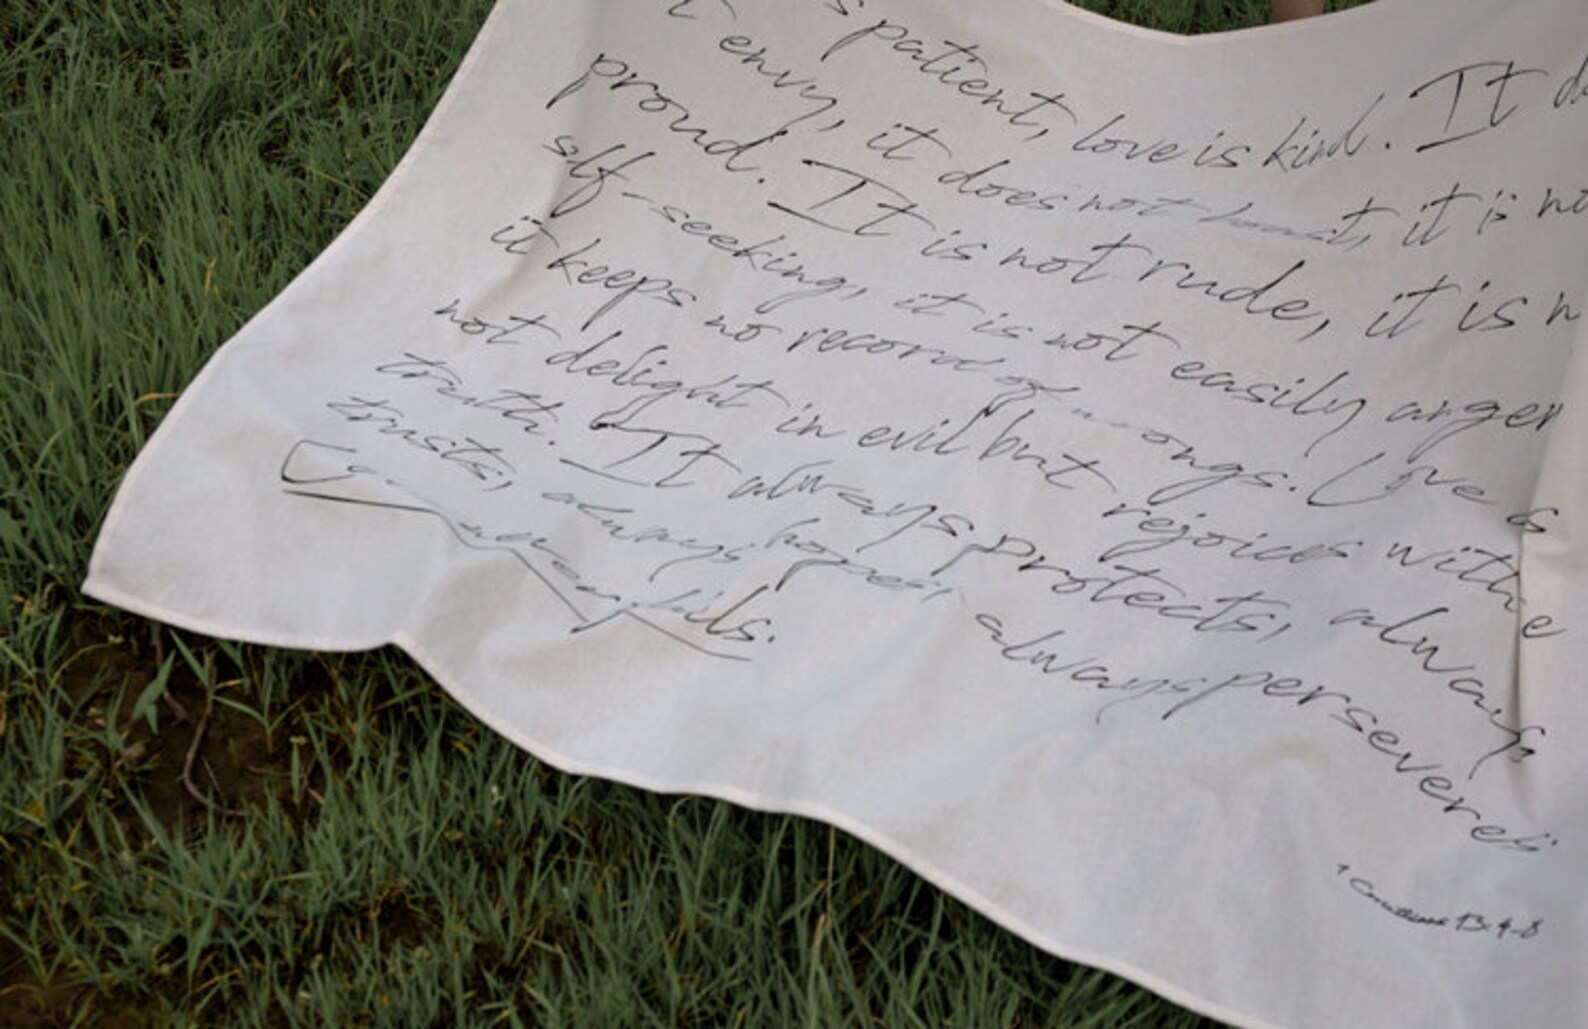 patient, love is kind. It
envy, it does not boast, it is no
proud. It is not rude, it is n
self-seeking, it is not easily anger
it keeps no record of wrongs. Love
not delight in evil but rejoices with e
truth. It always protects, always
trusts, always hopes, always perseveres
Love never fails.
1 Corinthians 13:4-8